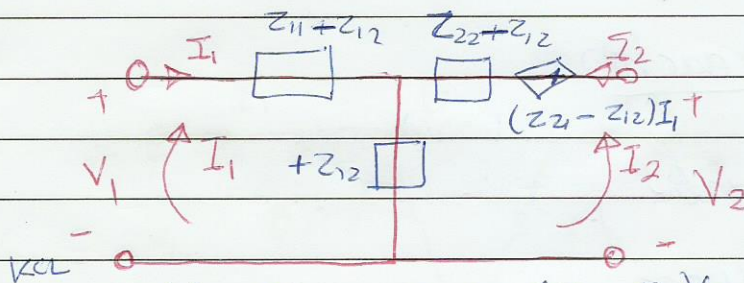 Z11+Z12 Z22+Z12
I1 I2
+ (Z21-Z12)I1 +
I1 +Z12 I2
V1 V2
- -
KCL